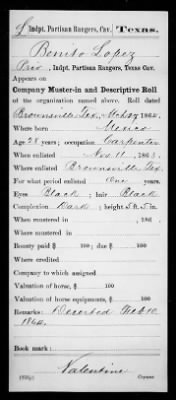 L Indpt. Partisan Rangers, Cav. Texas.
Benito Lopez
Priv, Indpt. Partisan Rangers, Texas Cav.
Appears on
Company Muster-in and Descriptive Roll
of the organization named above. Roll dated
Brownsville Tex, Mch 24, 1864.
Where born Mexico
Age 28 years; occupation Carpenter
When enlisted Nov. 11, 1863.
Where enlisted Brownsville Tex.
For what period enlisted One years.
Eyes Black; hair Black
Complexion Dark; height 5 ft. 5 in.
When mustered in , 186 .
Where mustered in
Bounty paid $ 100; due $ 100
Where credited
Company to which assigned
Valuation of horse, $ 100
Valuation of horse equipments, $ 100
Remarks: Deserted Feb. 10,
1864.
Book mark:
Valentine
Copyist.